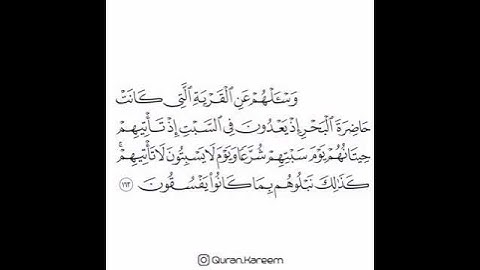 وَسْـَٔلْهُمْ عَنِ ٱلْقَرْيَةِ ٱلَّتِى كَانَتْ
حَاضِرَةَ ٱلْبَحْرِ إِذْ يَعْدُونَ فِى ٱلسَّبْتِ إِذْ تَأْتِيهِمْ
حِيتَانُهُمْ يَوْمَ سَبْتِهِمْ شُرَّعًا وَيَوْمَ لَا يَسْبِتُونَ لَا تَأْتِيهِمْ ۚ
كَذَٰلِكَ نَبْلُوهُم بِمَا كَانُوا۟ يَفْسُقُونَ ١٦٣
Quran.Kareem